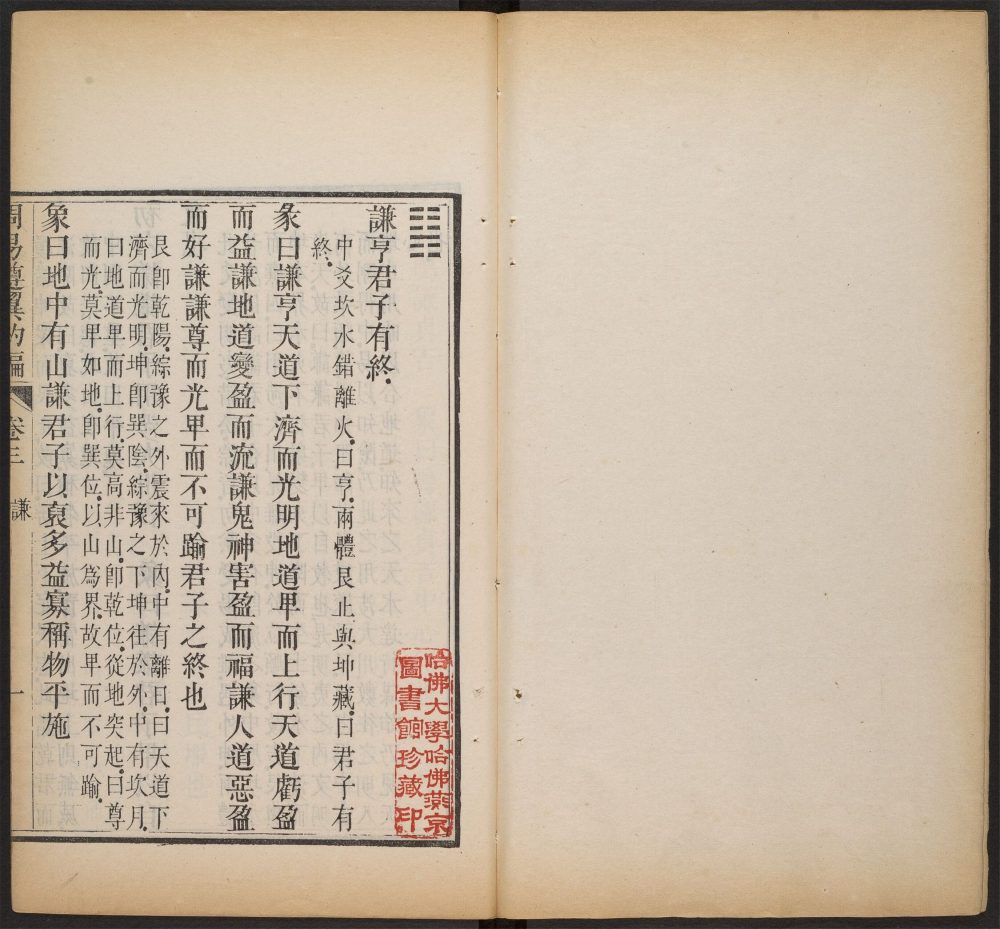 ䷎
謙亨君子有終
中爻坎水錯離火曰亨兩體艮止與坤藏曰君子有
終
彖曰謙亨天道下濟而光明地道卑而上行天道虧盈
而益謙地道變盈而流謙鬼神害盈而福謙人道惡盈
而好謙謙尊而光卑而不可踰君子之終也
艮卽乾陽綜豫之外震來於內中有離日曰天道下
濟而光明坤卽巽陰綜豫之下坤往於外中有坎月
曰地道卑而上行莫高非山卽乾位從地突起曰尊
而光莫卑如地卽巽位以山爲界故卑而不可踰
象曰地中有山謙君子以裒多益寡稱物平施
周易遵翼約編
卷三
謙
一
哈佛大學哈佛燕京
圖書館珍藏印